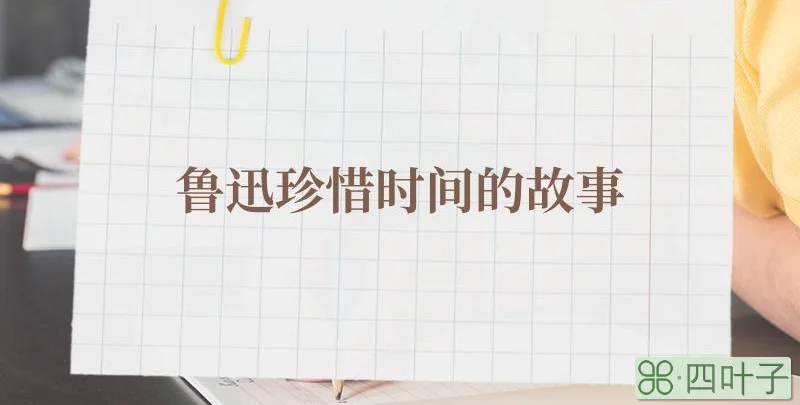 鲁迅珍惜时间的故事
四叶子